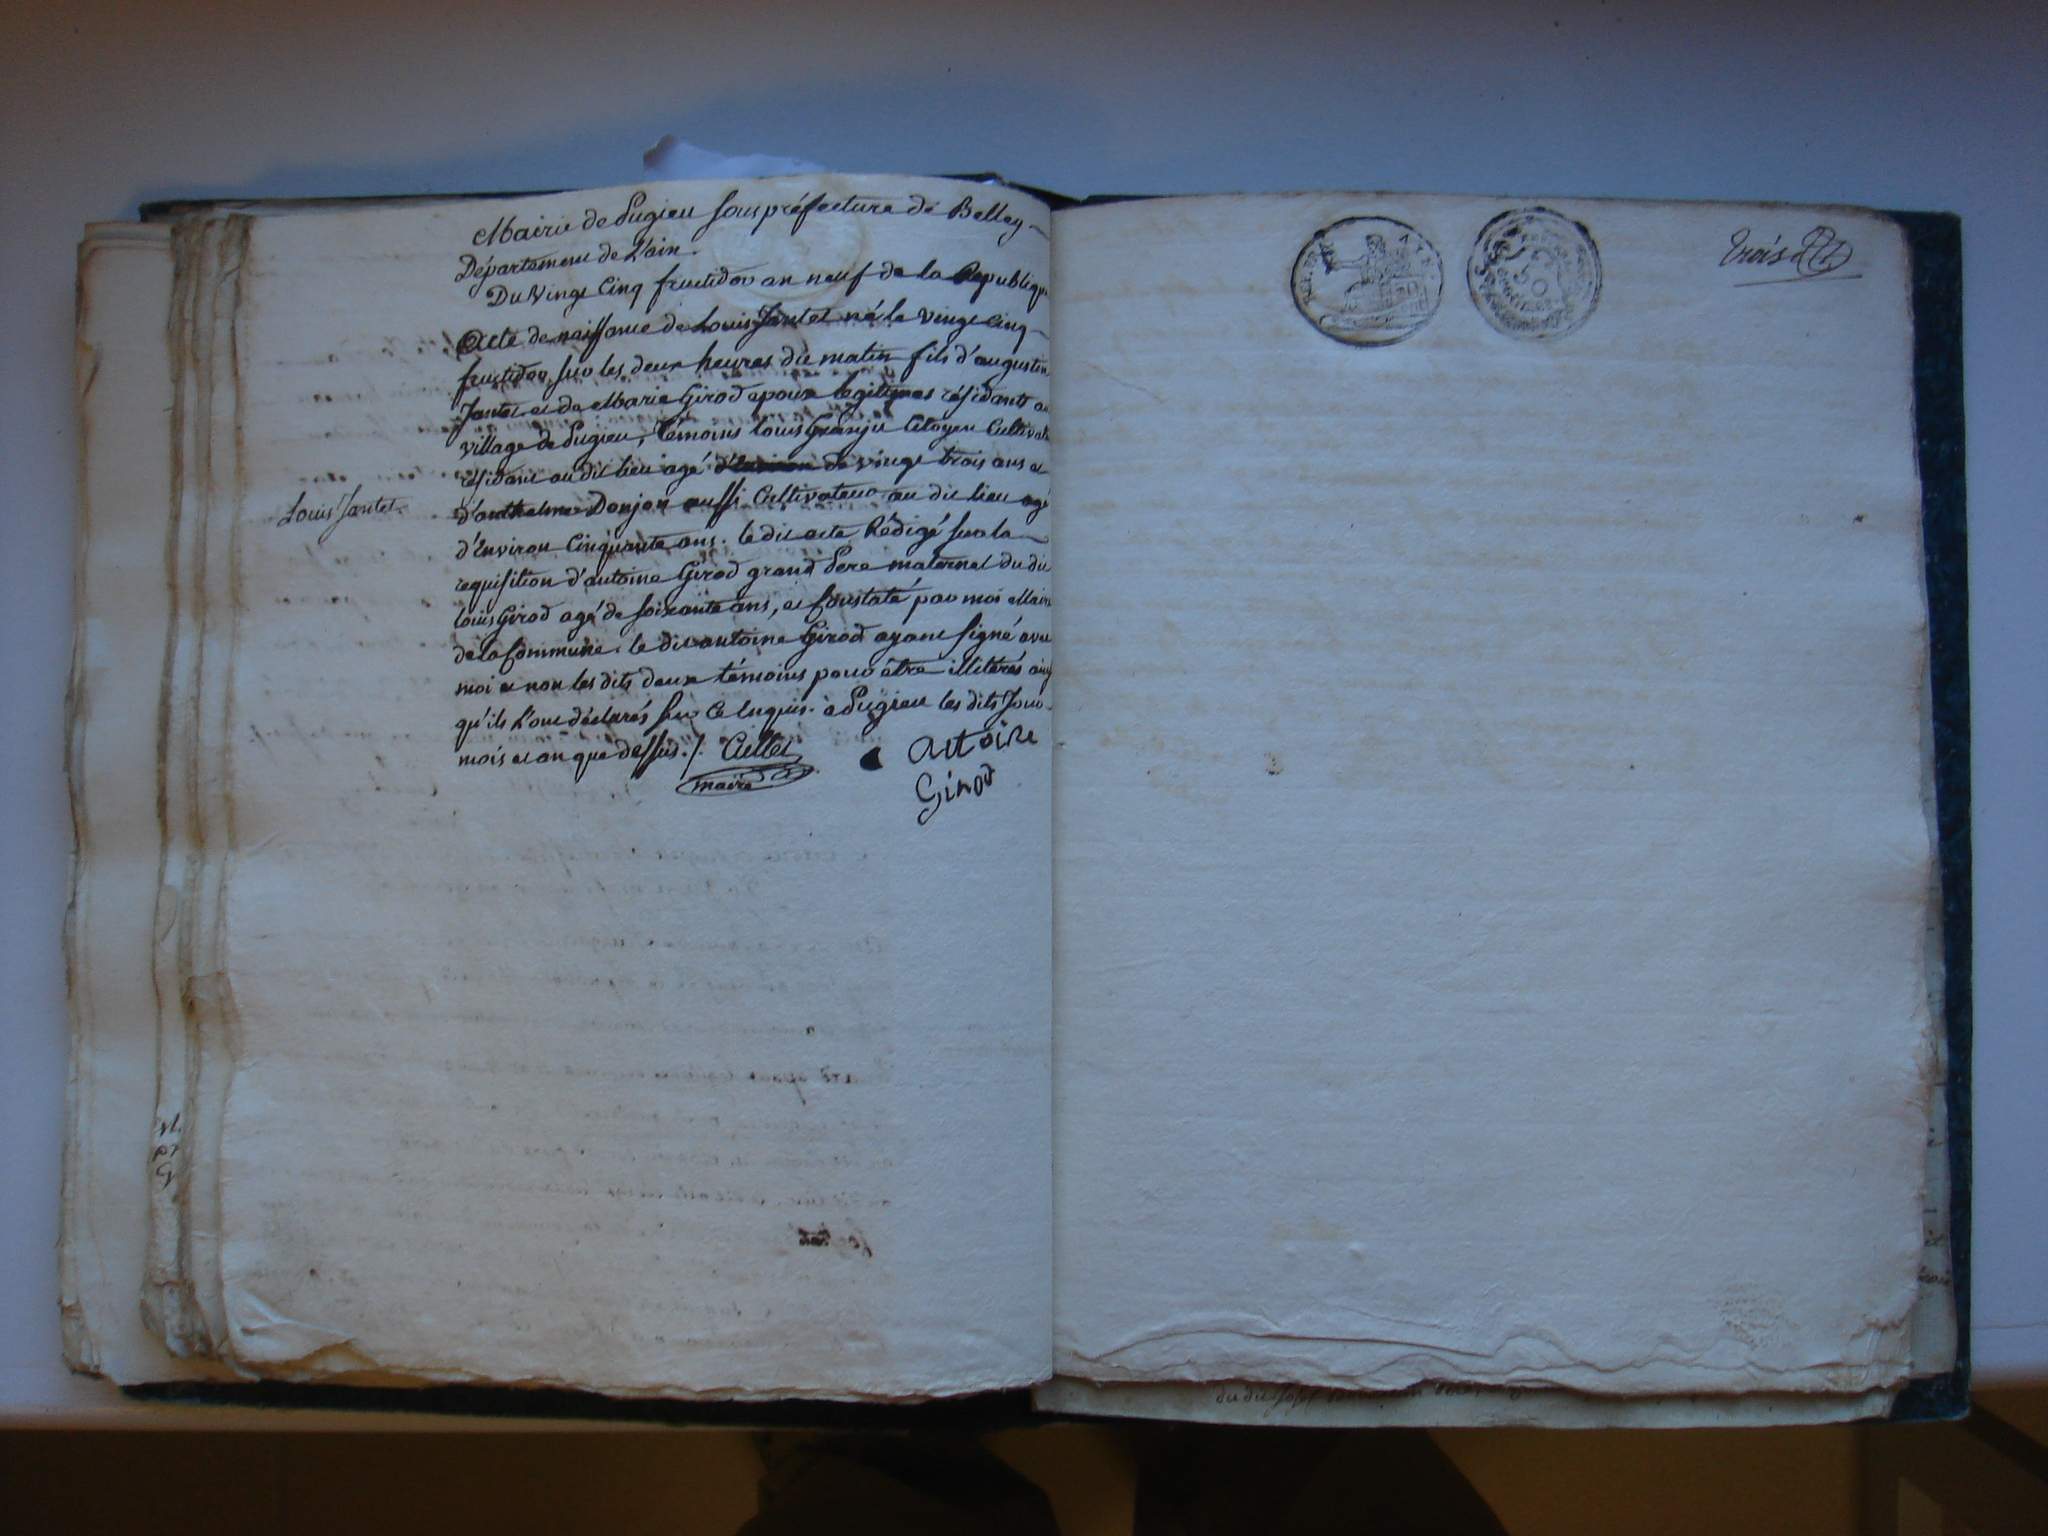 Mairie de Pugieu Souspréfecture de Belley
Département de L'ain.
Du Vingt Cinq fructidor an neuf de la Republique
Acte de naissance de Louis Jantet né le vingt cinq
fructidor, sur les deux heures du matin fils d'augustin
Jantet et de Marie Girod epoux legitimes résidants au
village de Pugieu, Témoins louis Granju Citoyen Cultivat
résidant au dit lieu agé de vingt trois ans et
d'anthelme Donjon aussi Cultivateur au dit lieu agé
Louis Jantet
d'Environ Cinquante ans. le dit acte Rédigé sur la
requisition d'antoine Girod grand Pere maternel du dit
louis Girod agé de soixante ans, et Constaté par moi Maire
de la Commune. le dit antoine Girod ayant signé avec
moi et non les dits deux témoins pour être illitérés ainsy
qu'ils L'ont déclarés sur ce Enquis. à Pugieu les dits Jour
mois et an que dessus./. Cullet
maire
antoine
Girod
REP. FRA
50
trois